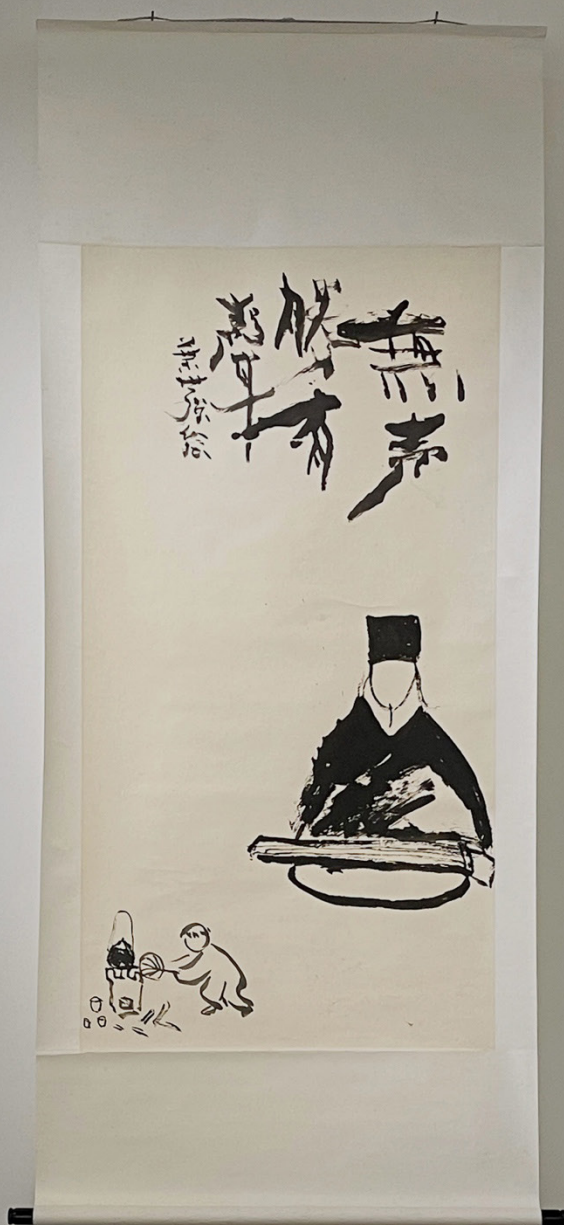 無声
勝有
聲